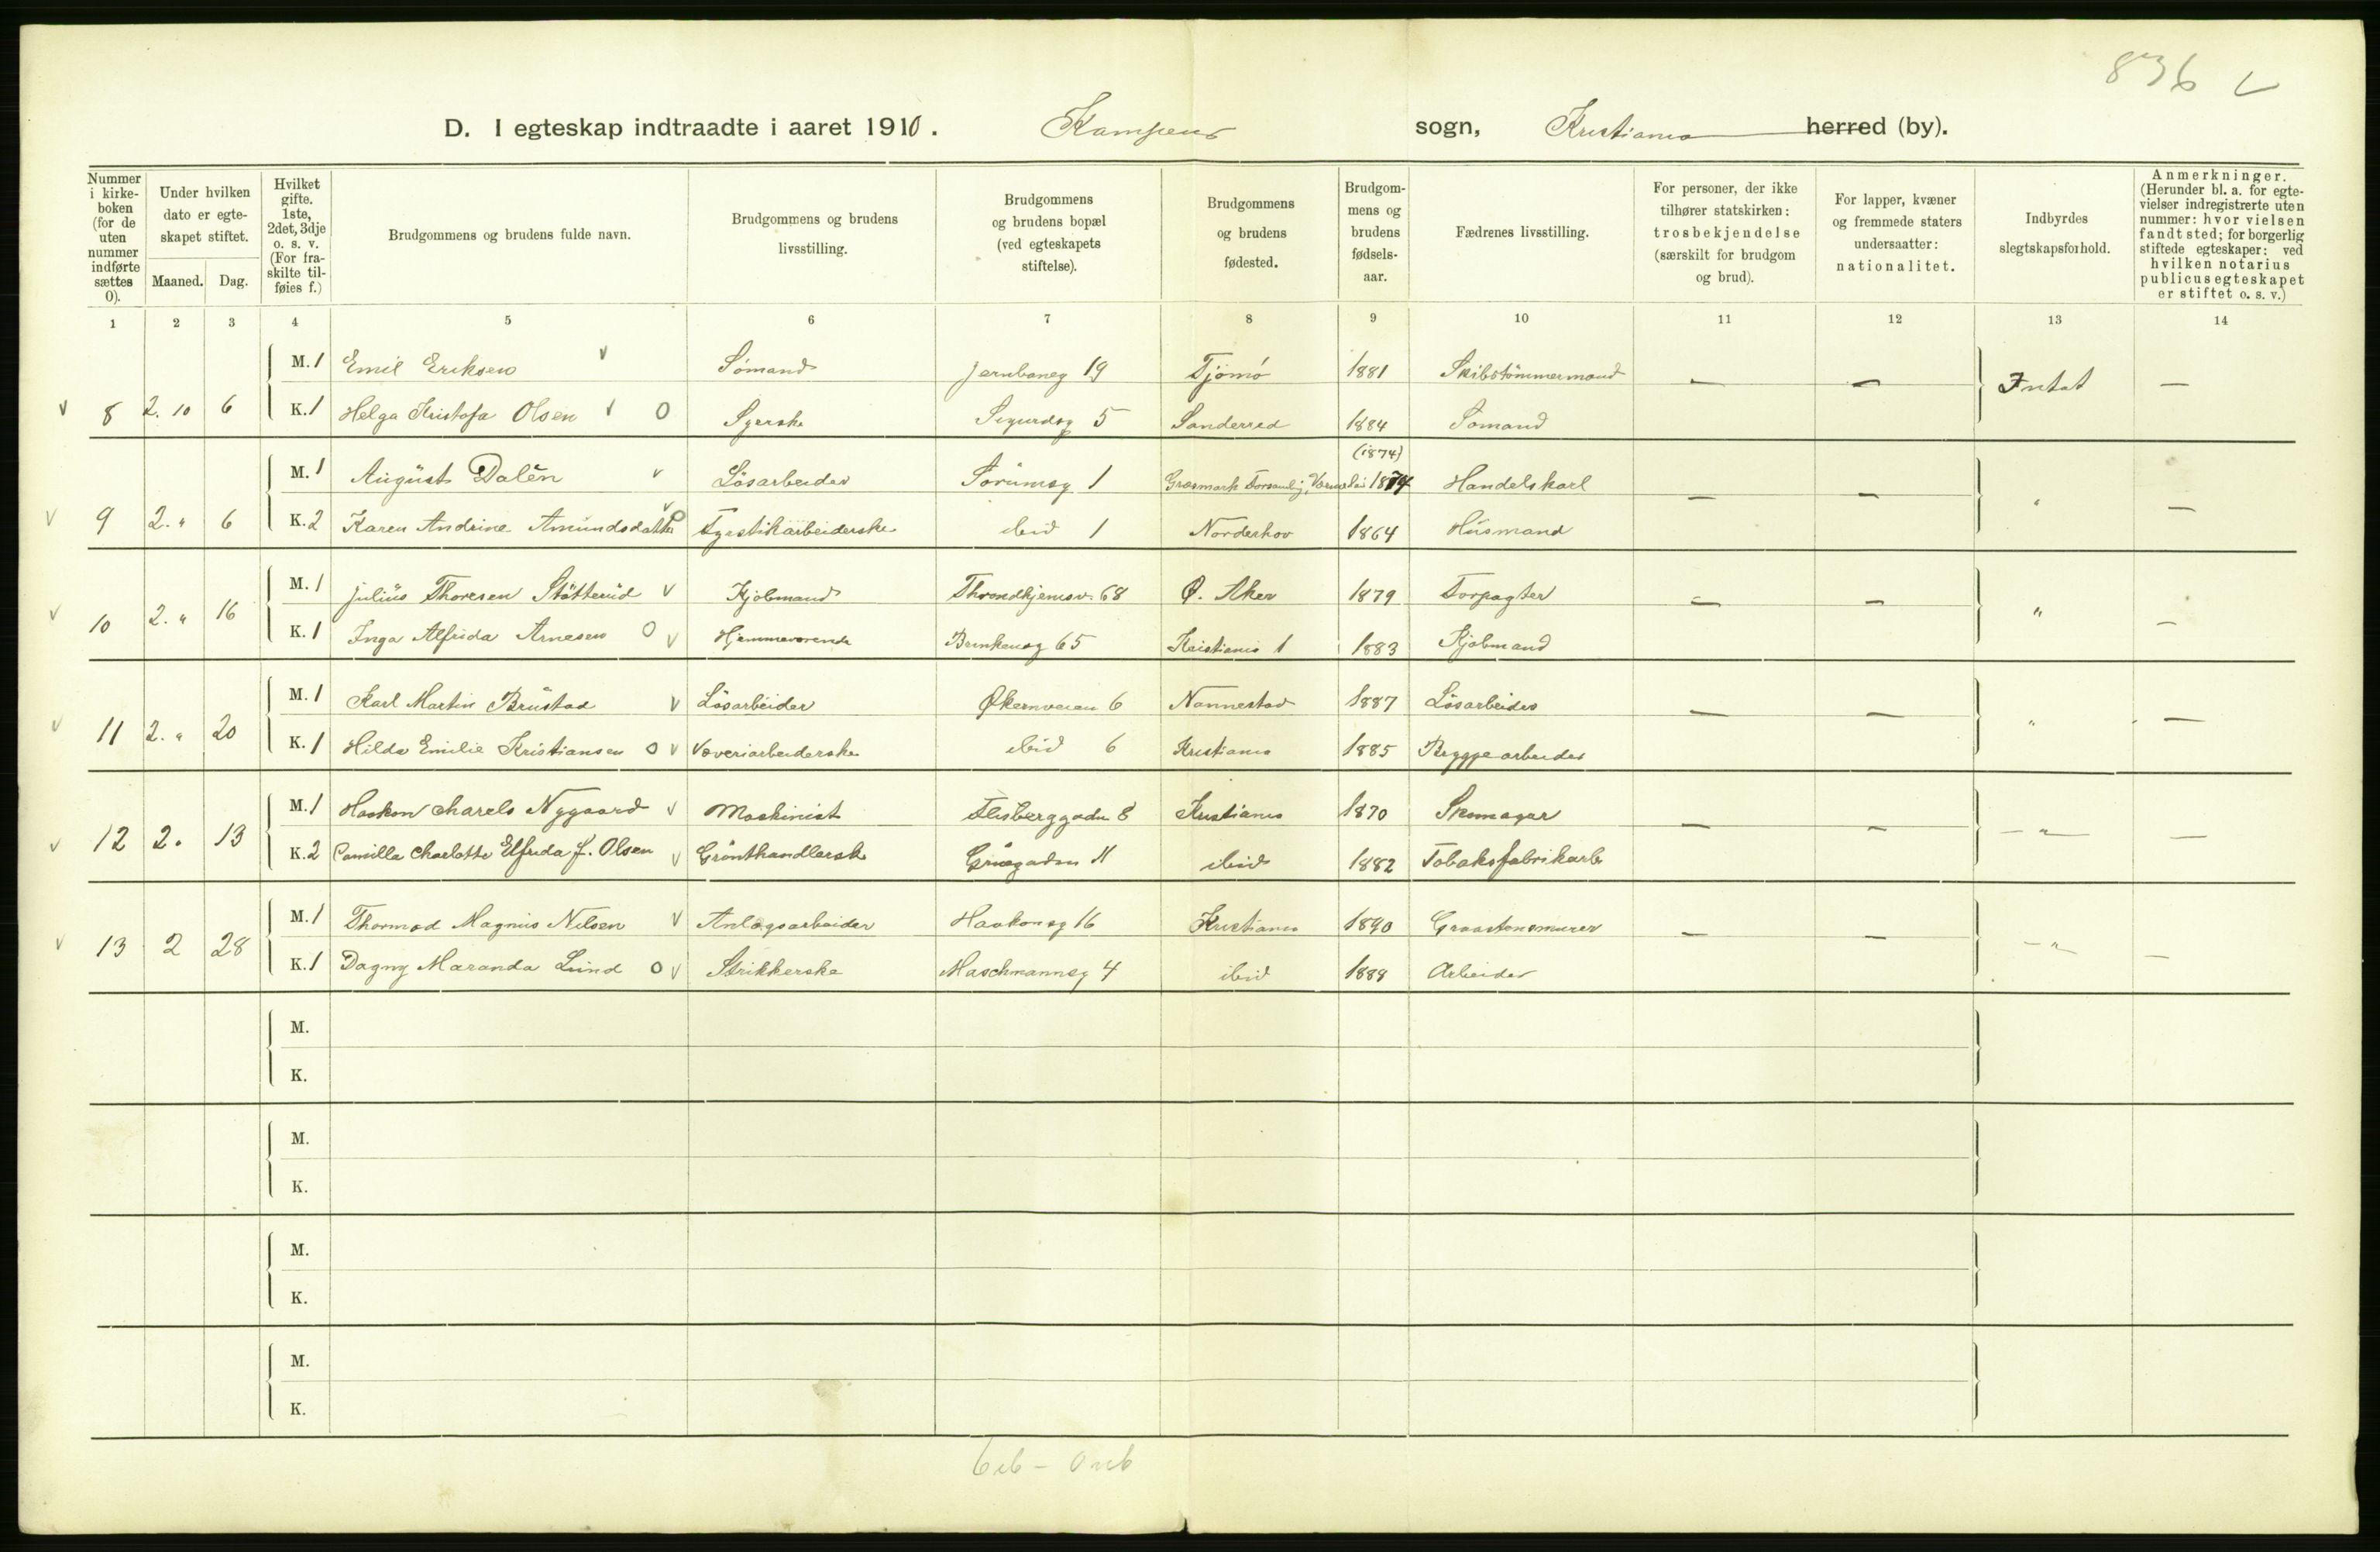 836
D. I egteskap indtraadte i aaret 1910. Kampens sogn, Kristiania herred (by).
Nummer i kirkeboken (for de uten nummer indførte sættes 0).
Under hvilken dato er egteskapet stiftet.
Maaned. Dag.
Hvilket gifte. 1ste, 2det, 3dje o. s. v. (For fraskilte tilføies f.)
Brudgommens og brudens fulde navn.
Brudgommens og brudens livsstilling.
Brudgommens og brudens bopæl (ved egteskapets stiftelse).
Brudgommens og brudens fødested.
Brudgommens og brudens fødselsaar.
Fædrenes livsstilling.
For personer, der ikke tilhører statskirken: trosbekjendelse (særskilt for brudgom og brud).
For lapper, kvæner og fremmede staters undersaatter: nationalitet.
Indbyrdes slegtskapsforhold.
Anmerkninger. (Herunder bl. a. for egtevielser indregistrerte uten nummer: hvor vielsen fandt sted; for borgerlig stiftede egteskaper: ved hvilken notarius publicus egteskapet er stiftet o. s. v.)
1 2 3 4 5 6 7 8 9 10 11 12 13 14
M. 1 Emil Eriksen v Sömand Jernbaneg 19 Tjömö 1881 Skibstömmermand — —
v 8 2. 10 6 K. 1 Helga Kristofa Olsen v O Syerske Sigurdsg 5 Sanderred 1884 Sömand Intet —
(1874)
M. 1 August Dalén v Lösarbeider Sörumsg 1 Græsmark 1874 Handelskarl — —
v 9 2. " 6 K. 2 Karen Andrine Amundsdatter v O Fyrstikarbeiderske ibid 1 Norderhov 1864 Husmand " —
M. 1 Julius Thoresen Stötterud v Kjöbmand Throndhjemsv. 68 Ø. Aker 1879 Forpagter — —
v 10 2. " 16 K. 1 Inga Alfrida Arnesen O v Hjemmeværende 65 Kristiania 1 1883 Kjöbmand " —
M. 1 Karl Martin Brustad v Lösarbeider Økernveien 6 Nannestad 1887 Lösarbeider — —
v 11 2. " 20 K. 1 Hilda Emilie Kristiansen O v Væveriarbeiderske ibid 6 Kristiania 1885 Bryggearbeider " —
M. 1 Haakon Charels Nygaard v Maskinist 8 Kristiania 1870 Skomager — —
v 12 2. 13 K. 2 Camilla Charlotte Elfrida f. Olsen v Grönthandlerske Grüegaden 11 ibid 1882 Tobaksfabrikarb — " — —
M. 1 Thormod Magnus Nilsen v Anlægsarbeider Haakonsg 16 Kristiania 1890 Graastensmurer — —
v 13 2 28 K. 1 Dagny Maranda Lund O v Strikkerske Maschmannsg 4 ibid 1888 Arbeider — " — —
M.
K.
M.
K.
M.
K.
M.
K.